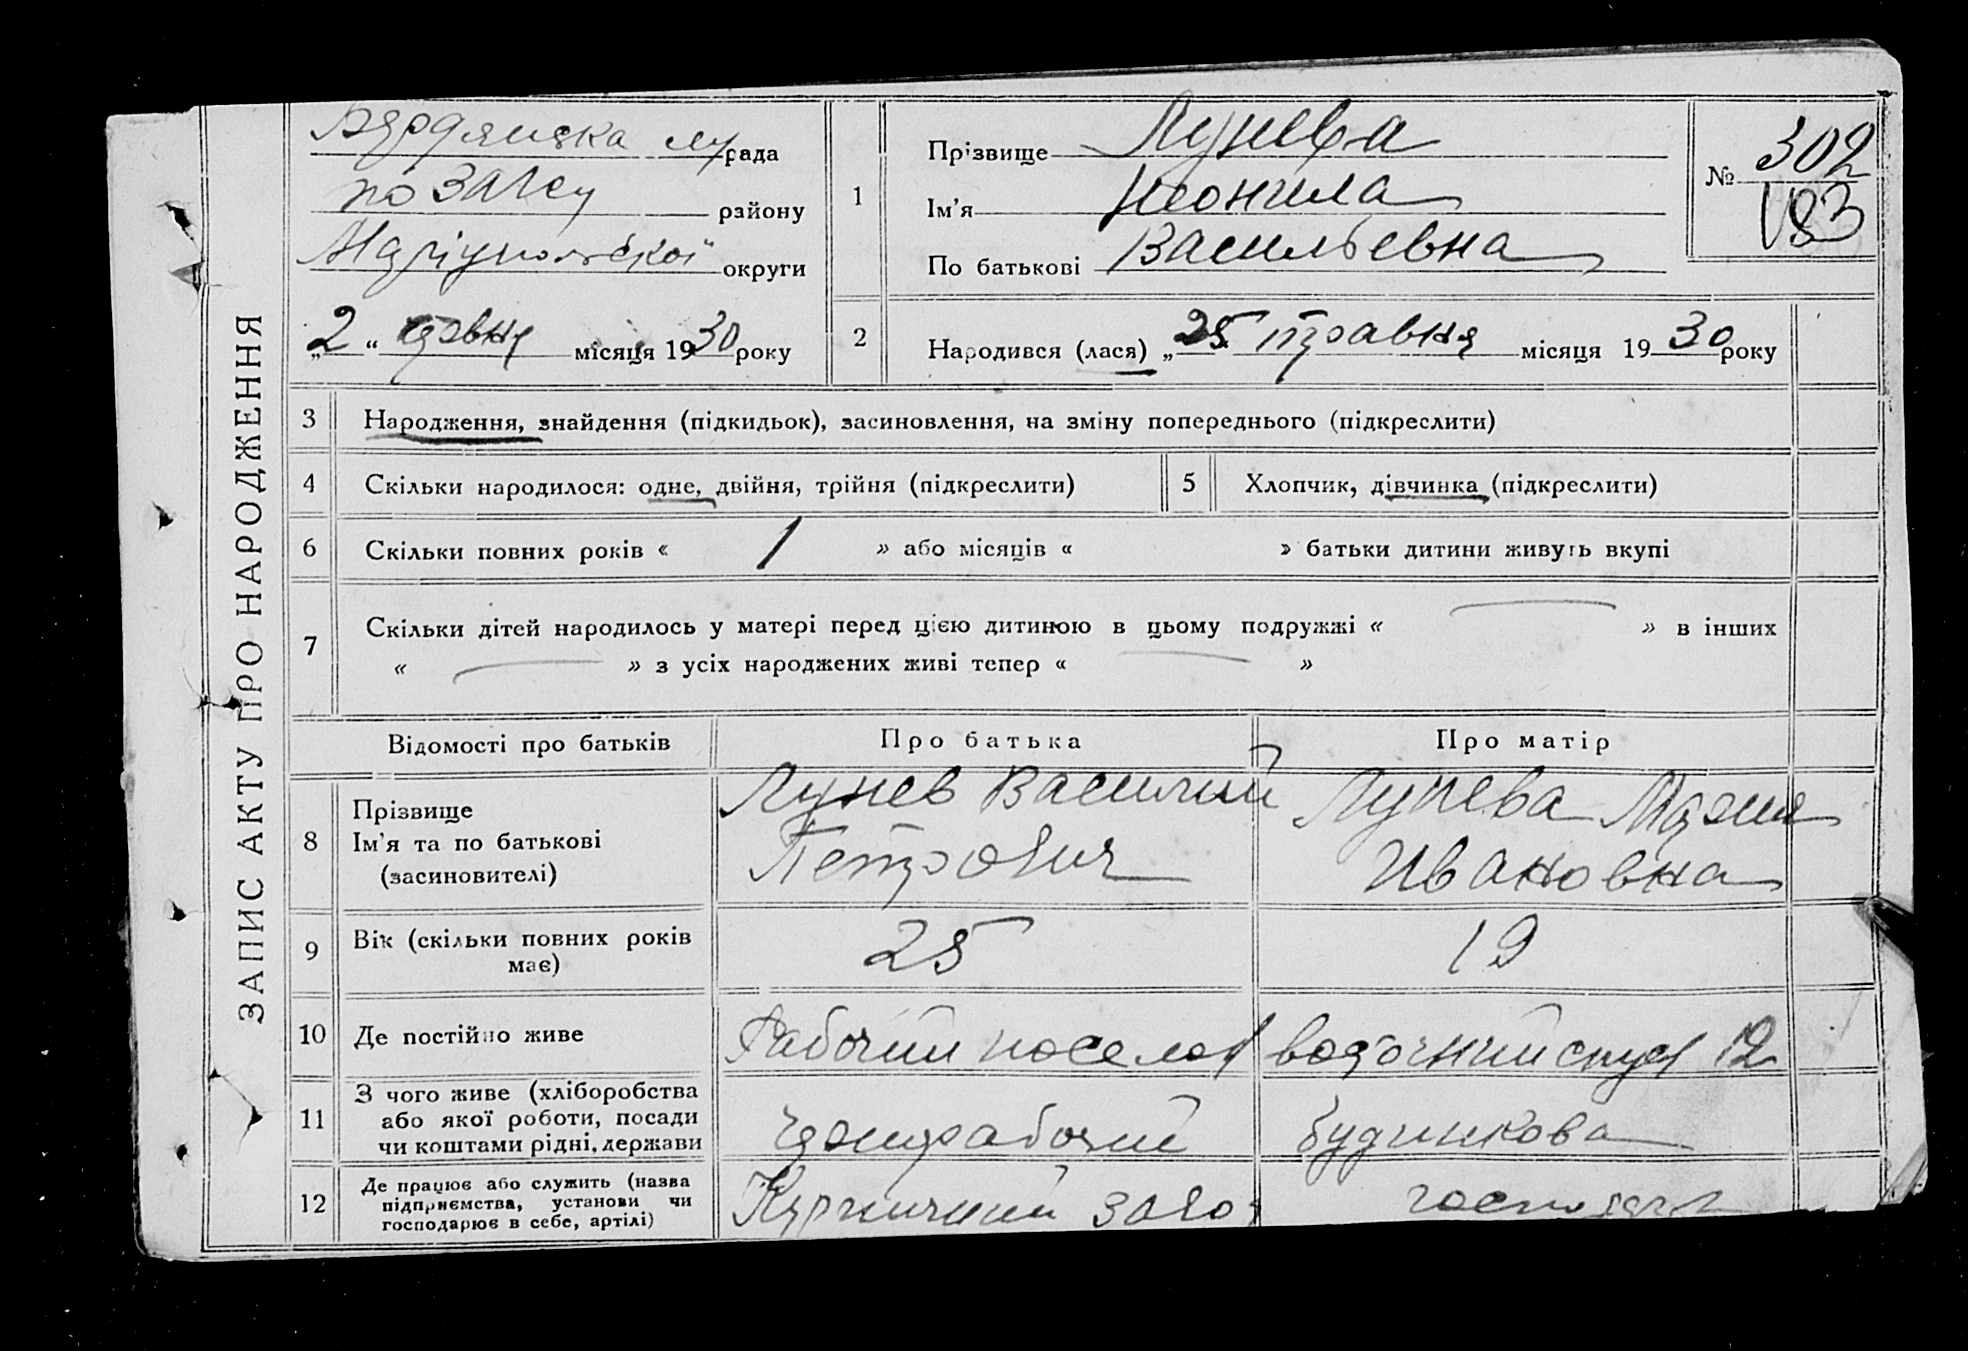 ЗАПИС АКТУ ПРО НАРОДЖЕННЯ
Бярдянська м/рада
по ЗАГСу району
Маріупольської округи
„2“ травня місяця 1930 року
1
Прізвище Лунева
Ім'я Неонила
По батькові Васильевна
№ 302
183
2
Народився (лася) „25 травня місяця 1930 року
3 Народження, знайдення (підкидьок), засиновлення, на зміну попереднього (підкреслити)
4 Скільки народилося: одне, двійня, трійня (підкреслити)
5 Хлопчик, дівчинка (підкреслити)
6 Скільки повних років « 1 » або місяців « » батьки дитини живуть вкупі
7 Скільки дітей народилось у матері перед цією дитиною в цьому подружжі « — » в інших
« — » з усіх народжених живі тепер « — »
Відомості про батьків Про батька Про матір
8 Прізвище
Ім'я та по батькові
(засиновителі)
Лунев Василий
Петрович
Лунева Мария
Ивановна
9 Вік (скільки повних років
має)
25 19
10 Де постійно живе Рабочий поселок 12
11 З чого живе (хліборобства
або якої роботи, посади
чи коштами рідні, держави
Чернорабочий
будинкова
12 Де працює або служить (назва
підприємства, установи чи
господарює в себе, артілі)
завод